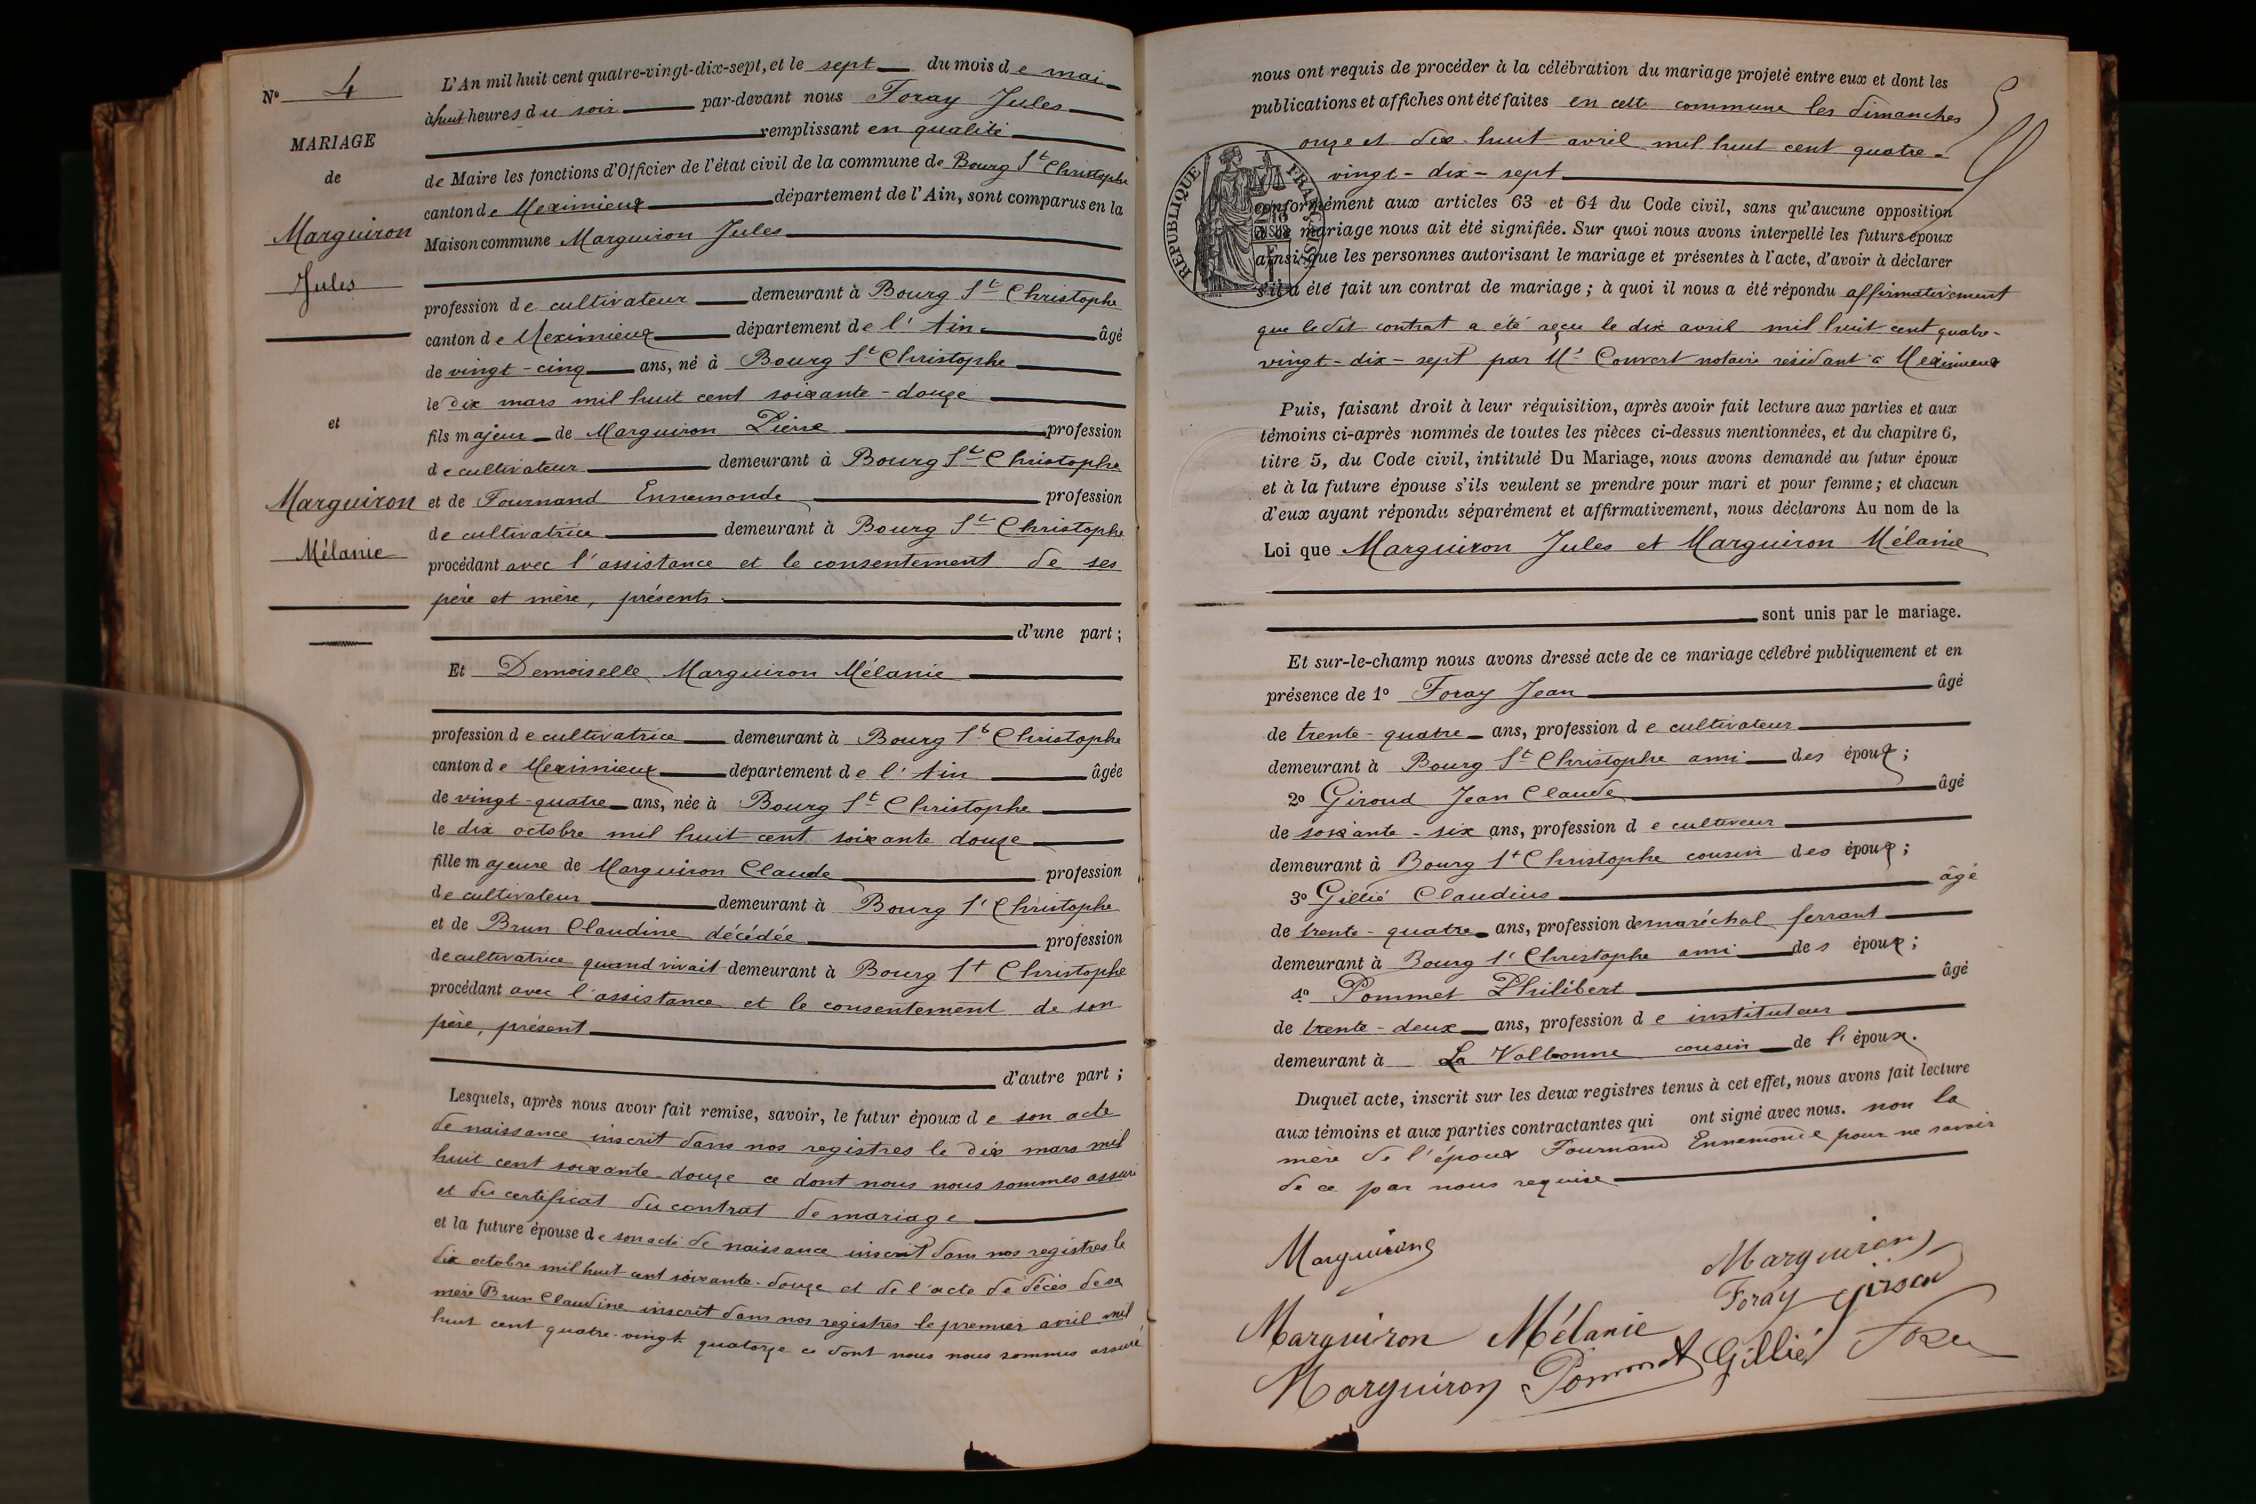 N° 4
MARIAGE
de
Marguiron
Jules
et
Marguiron
Mélanie
L'An mil huit cent quatre-vingt-dix-sept, et le sept du mois de mai
à huit heures du soir par-devant nous Foray Jules
remplissant en qualité
de Maire les fonctions d'Officier de l'état civil de la commune de Bourg St Christophe
canton de Meximieux département de l'Ain, sont comparus en la
Maison commune Marguiron Jules
profession de cultivateur demeurant à Bourg St Christophe
canton de Meximieux département de l'Ain âgé
de vingt-cinq ans, né à Bourg St Christophe
le dix mars mil huit cent soixante-douze
fils majeur de Marguiron Pierre profession
de cultivateur demeurant à Bourg St Christophe
et de Fournand Ennemonde profession
de cultivatrice demeurant à Bourg St Christophe
procédant avec l'assistance et le consentement de ses
père et mère, présents
d'une part ;
Et Demoiselle Marguiron Mélanie
profession de cultivatrice demeurant à Bourg St Christophe
canton de Meximieux département de l'Ain âgée
de vingt-quatre ans, née à Bourg St Christophe
le dix octobre mil huit cent soixante douze
fille majeure de Marguiron Claude profession
de cultivateur demeurant à Bourg St Christophe
et de Brun Claudine décédée profession
de cultivatrice quand vivait demeurant à Bourg St Christophe
procédant avec l'assistance et le consentement de son
père, présent
d'autre part ;
Lesquels, après nous avoir fait remise, savoir, le futur époux de son acte
de naissance inscrit dans nos registres le dix mars mil
huit cent soixante-douze ce dont nous nous sommes assuré
et du certificat du contrat de mariage
et la future épouse de son acte de naissance inscrit dans nos registres le
dix octobre mil huit cent soixante-douze et de l'acte de décès de sa
mère Brun Claudine inscrit dans nos registres le premier avril mil
huit cent quatre-vingt quatorze ce dont nous nous sommes assuré
nous ont requis de procéder à la célébration du mariage projeté entre eux et dont les
publications et affiches ont été faites en cette commune les dimanches
onze et dix-huit avril mil huit cent quatre-
vingt-dix-sept
conformément aux articles 63 et 64 du Code civil, sans qu'aucune opposition
à ce mariage nous ait été signifiée. Sur quoi nous avons interpellé les futurs époux
ainsi que les personnes autorisant le mariage et présentes à l'acte, d'avoir à déclarer
s'il a été fait un contrat de mariage ; à quoi il nous a été répondu affirmativement
que ledit contrat a été reçu le dix avril mil huit cent quatre-
vingt-dix-sept par Me Convert notaire résidant à Meximieux
RÉPUBLIQUE FRANÇAISE
Puis, faisant droit à leur réquisition, après avoir fait lecture aux parties et aux
témoins ci-après nommés de toutes les pièces ci-dessus mentionnées, et du chapitre 6,
titre 5, du Code civil, intitulé Du Mariage, nous avons demandé au futur époux
et à la future épouse s'ils veulent se prendre pour mari et pour femme ; et chacun
d'eux ayant répondu séparément et affirmativement, nous déclarons Au nom de la
Loi que Marguiron Jules et Marguiron Mélanie
sont unis par le mariage.
Et sur-le-champ nous avons dressé acte de ce mariage célébré publiquement et en
présence de 1° Foray Jean âgé
de trente-quatre ans, profession de cultivateur
demeurant à Bourg St Christophe ami des époux ;
2° Giroud Jean Claude âgé
de soixante-six ans, profession de cultiveur
demeurant à Bourg St Christophe cousin des époux ;
3° Gillié Claudius âgé
de trente-quatre ans, profession de maréchal ferrant
demeurant à Bourg St Christophe ami des époux ;
4° Pommet Philibert âgé
de trente-deux ans, profession de instituteur
demeurant à La Valbonne cousin de l'époux.
Duquel acte, inscrit sur les deux registres tenus à cet effet, nous avons fait lecture
aux témoins et aux parties contractantes qui ont signé avec nous. non la
mère de l'époux Fournand Ennemonde pour ne savoir
de ce par nous requise
Marguiron
Marguiron
Foray Giroud
Marguiron Mélanie
Marguiron Pommet Gillié